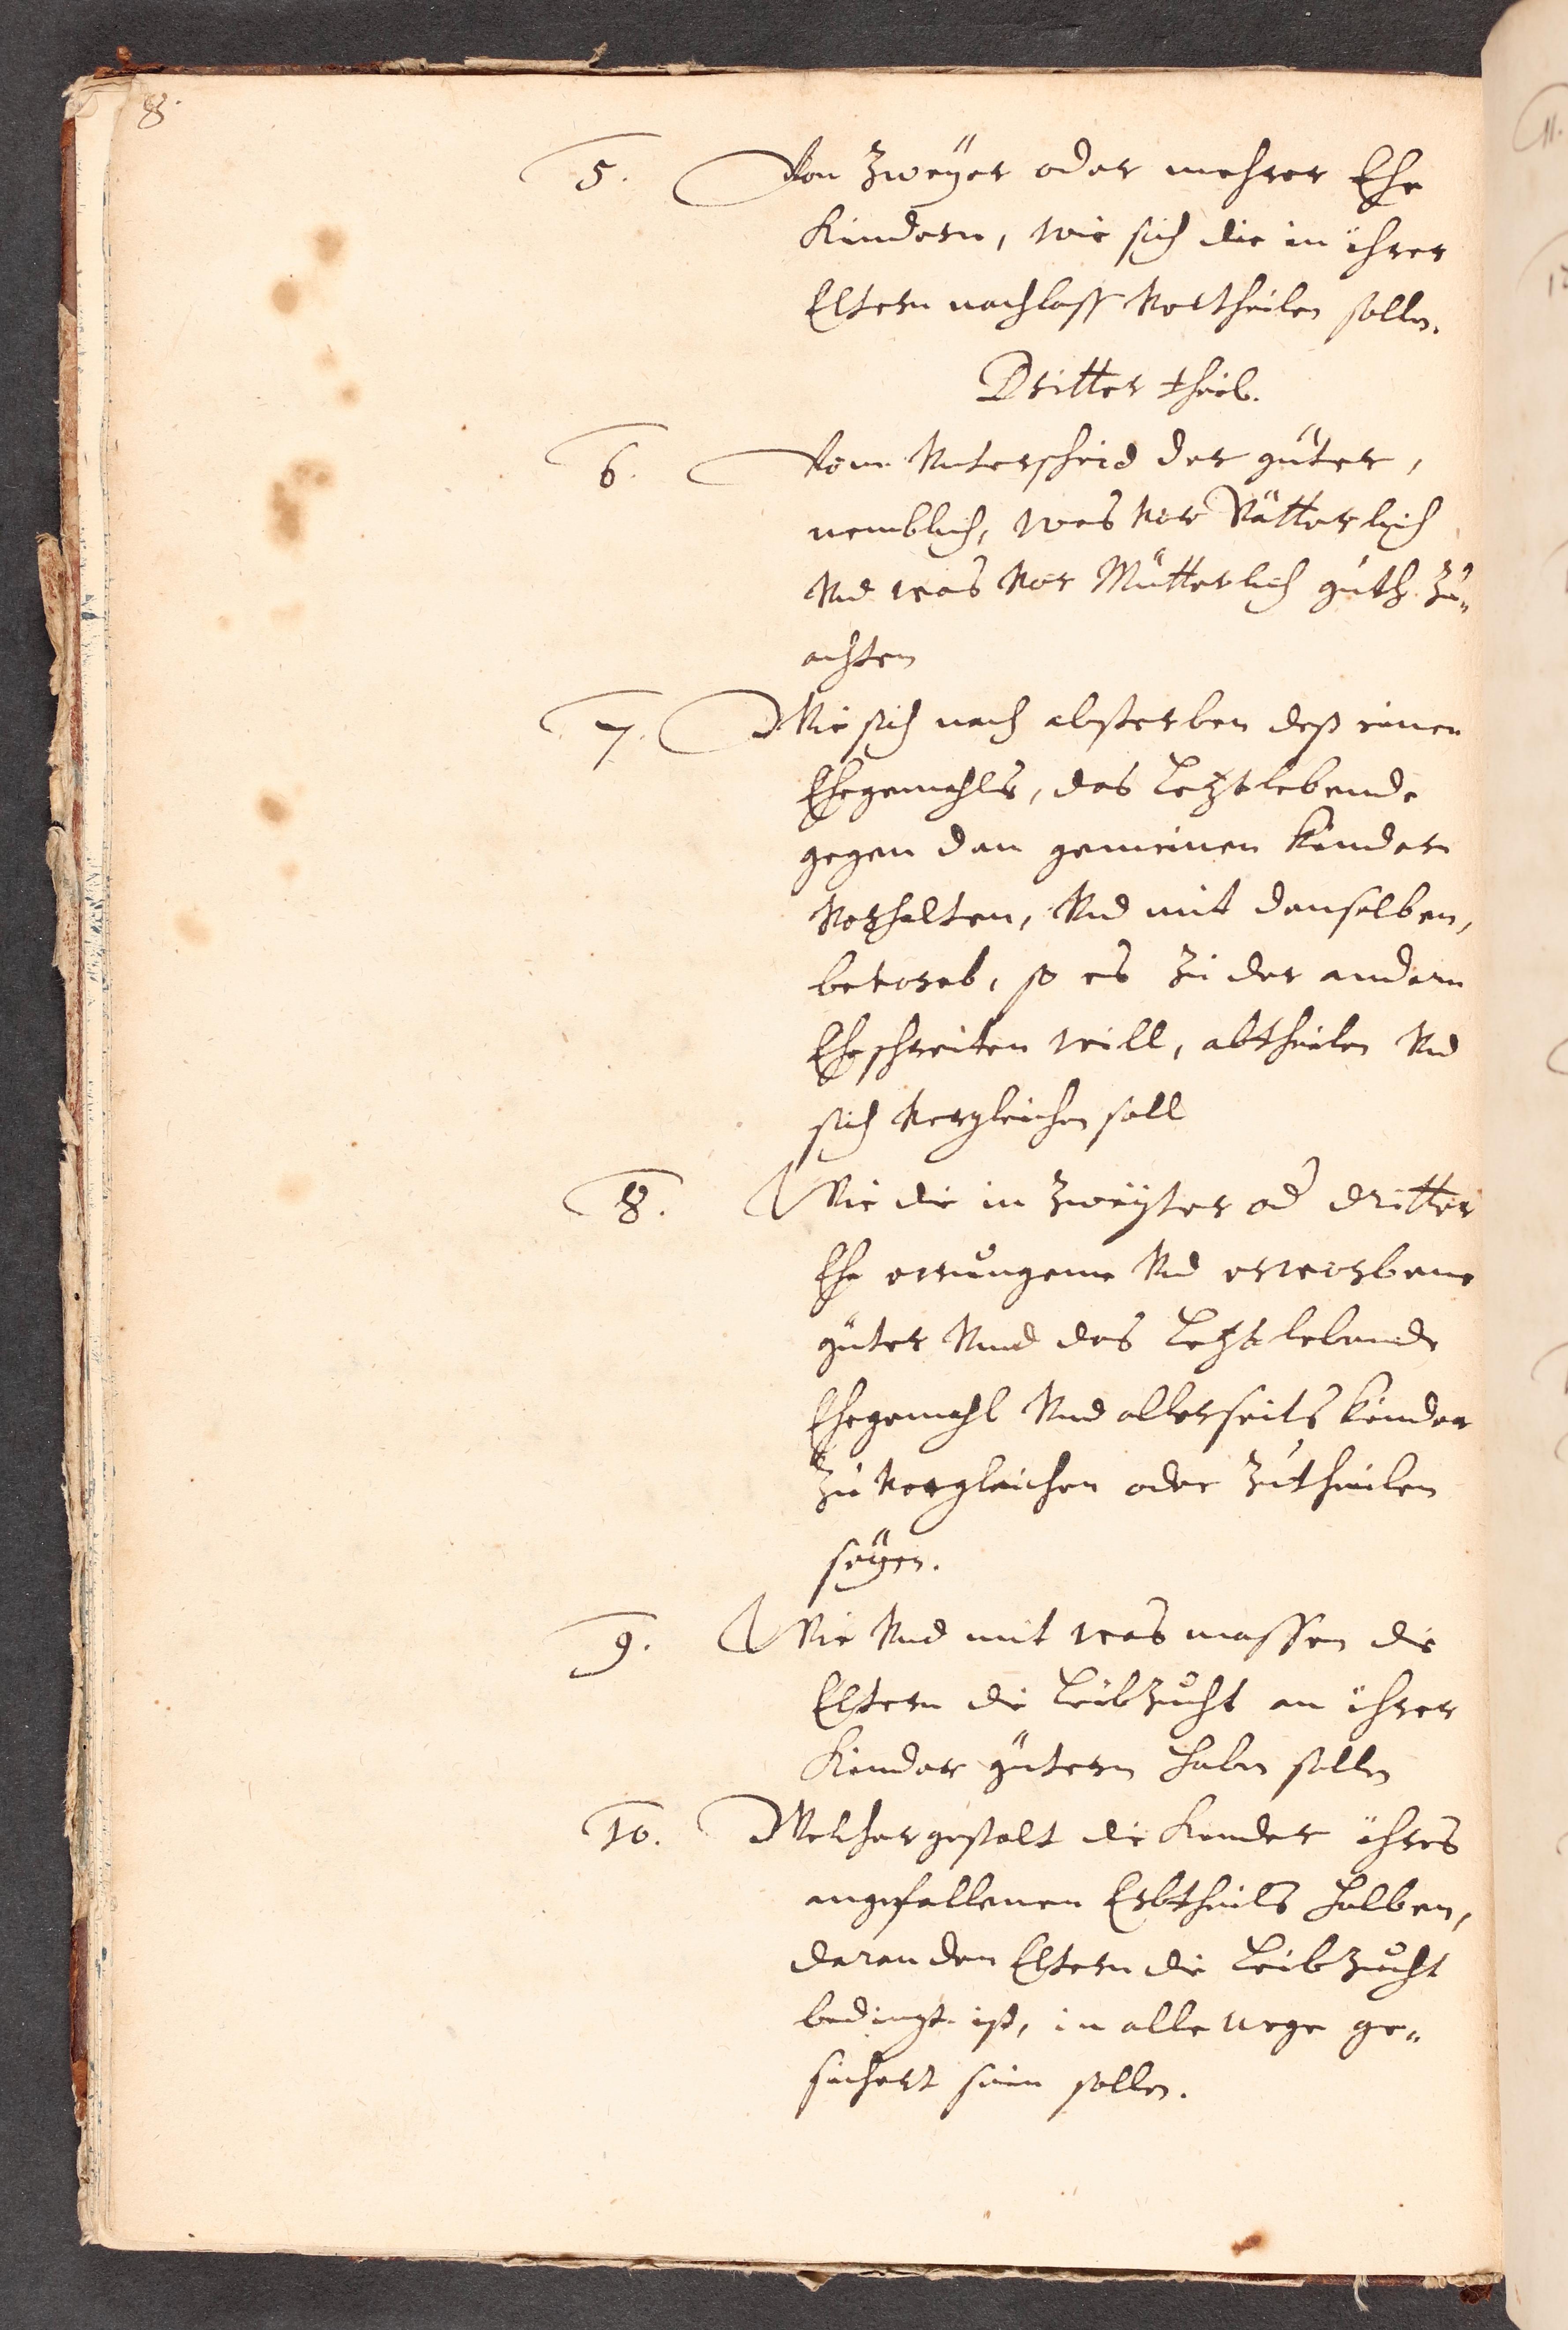 8.
5. Von Zweÿer oder mehrer Ehe
Kindern, wie sich die in ihrer
Eltern nachlass Vertheilen sollen.
Dritter theil.
6. Vom Unterscheid der güter,
nemblich, was vor Vätterlich
Und was vor Mütterlich guth zu„
achten
7. Wie sich nach absterben deß einen
Ehegemahls, das Letztlebende
gegen den gemeinen Kindern
Verhalten, Und mit denselben,
bevorab, so es zu der andern
Ehe schreiten will, abtheilen Und
sich Vergleichen soll
8. Wie die in Zweÿter od dritter
Ehe errungene Und erworbene
güter Und das Letztlebende
Ehegemahl Und allerseits Kinder
zu Vergleichen oder zutheilen
seÿen.
9. Wie Und mit was massen die
Eltern die Leibzucht an ihrer
Kinder gütern haben sollen
10. Welcher gestalt die Kinder ihres
angefallenen Erbtheils halben,
daran den Eltern die Leibzucht
bedingt ist, in alle wege ge„
sichert sein sollen.
11.